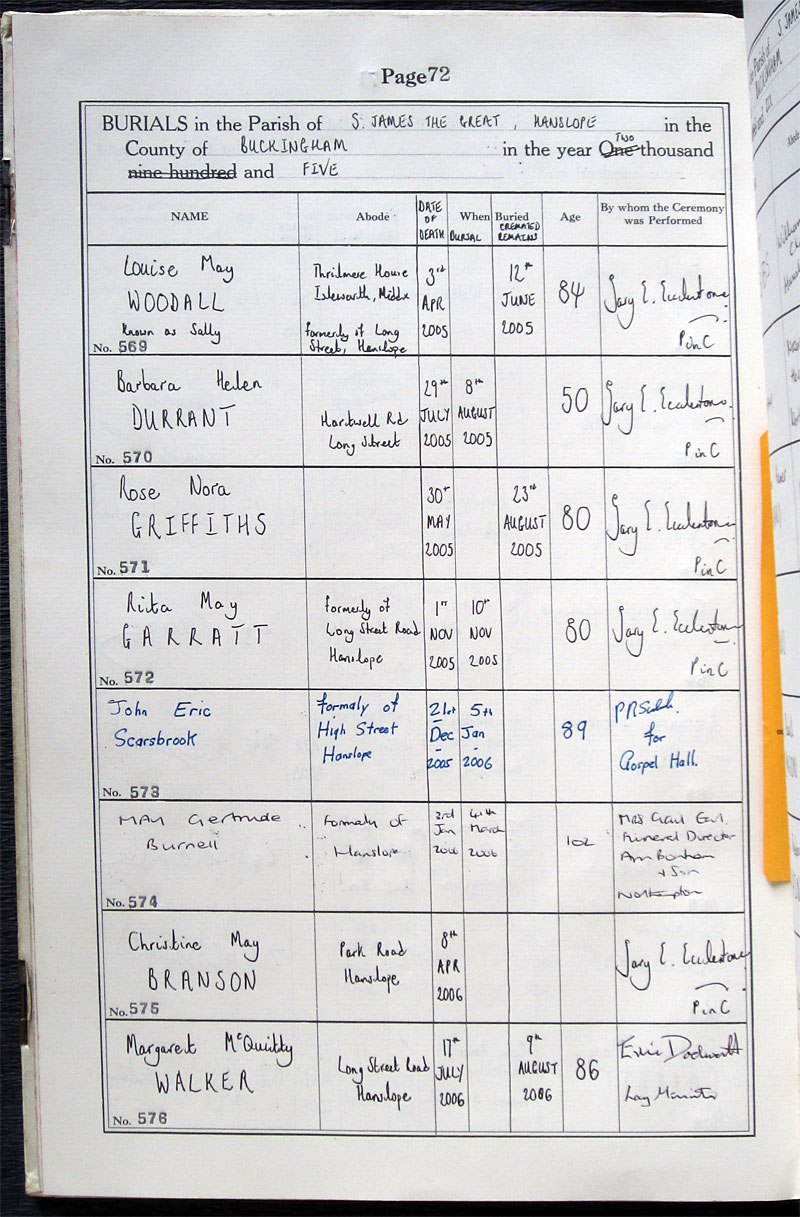 Page 72
BURIALS in the Parish of S. JAMES THE GREAT, HANSLOPE in the
County of BUCKINGHAM in the year One TWO thousand
nine hundred and FIVE
NAME
Abode
DATE OF DEATH
When Buried
BURIAL
CREMATED REMAINS
Age
By whom the Ceremony was Performed
Louise May
WOODALL
known as Sally
No. 569
Thirlmere House
Isleworth, Middx
formerly of Long
Street, Hanslope
3rd
APR
2005
12th
JUNE
2005
84
Gary E. Ecclestone
P in C
Barbara Helen
DURRANT
No. 570
Hartwell Rd
Long Street
29th
JULY
2005
8th
AUGUST
2005
50
Gary E. Ecclestone
P in C
Rose Nora
GRIFFITHS
No. 571
30th
MAY
2005
23rd
AUGUST
2005
80
Gary E. Ecclestone
P in C
Rita May
GARRATT
No. 572
formerly of
Long Street Road
Hanslope
1st
NOV
2005
10th
NOV
2005
80
Gary E. Ecclestone
P in C
John Eric
Scarsbrook
No. 573
formaly of
High Street
Hanslope
21st
Dec
2005
5th
Jan
2006
89
for
Gospel Hall.
MAY Gertrude
Burnell
No. 574
Formaly of
Hanslope
3rd
Jan
2006
4th
March
2006
102
Mrs Gail
Funeral Director
Ann Bonham
+ Son
Northampton
Christine May
BRANSON
No. 575
Park Road
Hanslope
8th
APR
2006
Gary E. Ecclestone
P in C
Margaret McQuitty
WALKER
No. 576
Long Street Road
Hanslope
17th
JULY
2006
9th
AUGUST
2006
86
Lay Minister